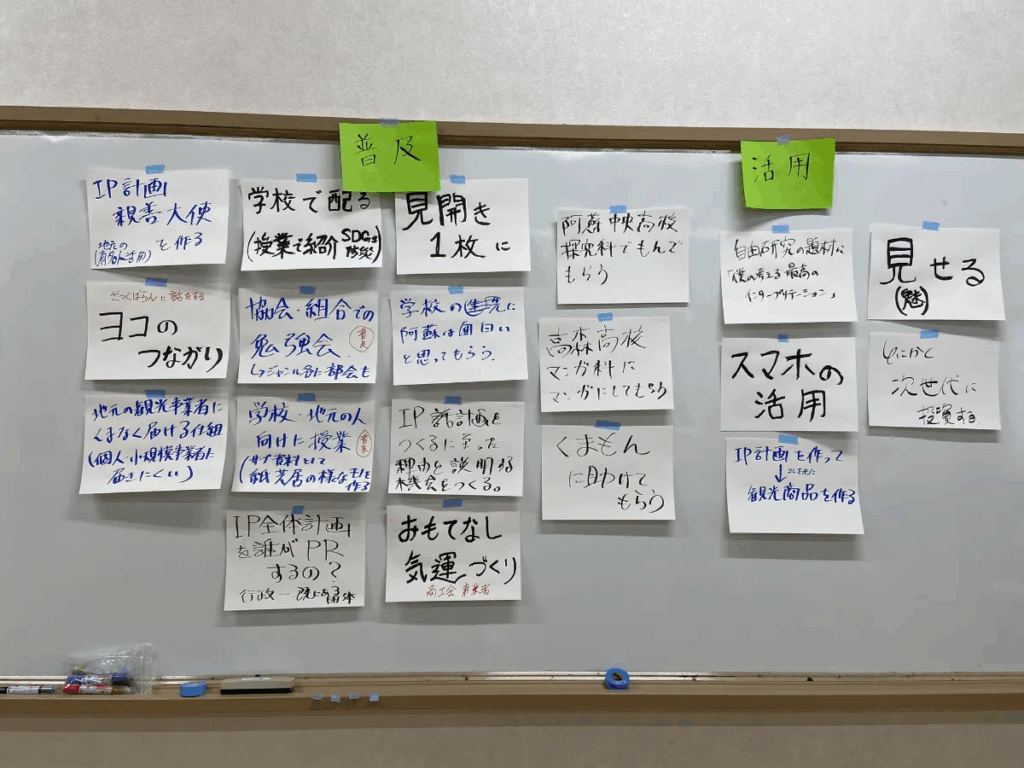 普及
IP計画
親善大使
を作る
地元の
学校で配る
(授業で紹介 SDGs
防災)
見開き
1枚に
ざっくばらんに話をする
ヨコの
つながり
協会・組合での
勉強会
↳ジャンル別に部会も
学校の
阿蘇は面白い
と思ってもらう。
地元の観光事業者に
くまなく届ける仕組
(個人・小規模事業者に
届きにくい)
学校・地元の人
向けに授業
(サブ資料として
紙芝居の様なモノを
作る
IP 計画を
つくるに至った
理由を説明する
機会をつくる。
IP全体計画
を誰がPR
するの?
行政一
おもてなし
気運づくり
商工会 事業者
阿蘇中央高校
探究科でもんで
もらう
高森高校
マンガ科に
マンガにしてもらう
くまもん
に助けて
もらう
活用
自由研究の題材に
「僕の考える最高の
インタープリテーション」
見せる
(魅)
スマホの
活用
とにかく
次世代に
投資する
IP計画を作って
↓コレを元に
観光商品を作る